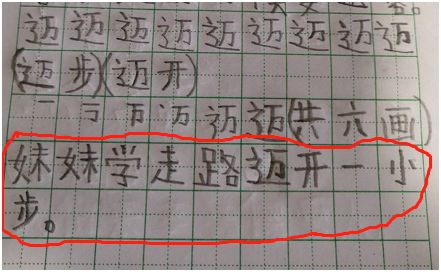 迈迈迈迈迈迈迈迈迈
(迈步)(迈开)
一丆万万迈迈(共六画)
妹妹学走路迈开一小
步。